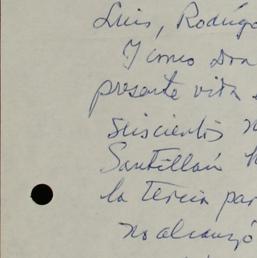 Luis, Rodrigo
Y como Don
presente vida
seiscientos
Santillán
la tercia par
no alcanzó